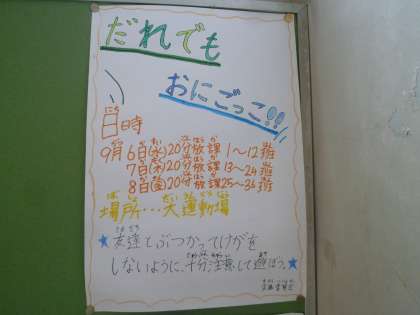 だれでも
おにごっこ!!
日時
9月6日(水)20分放課1~12班
7日(木)20分放課13~24班
8日(金)20分放課25~36班
場所…大運動場
★友達とぶつかってけがを
しないように、十分注意して遊ぼう。★